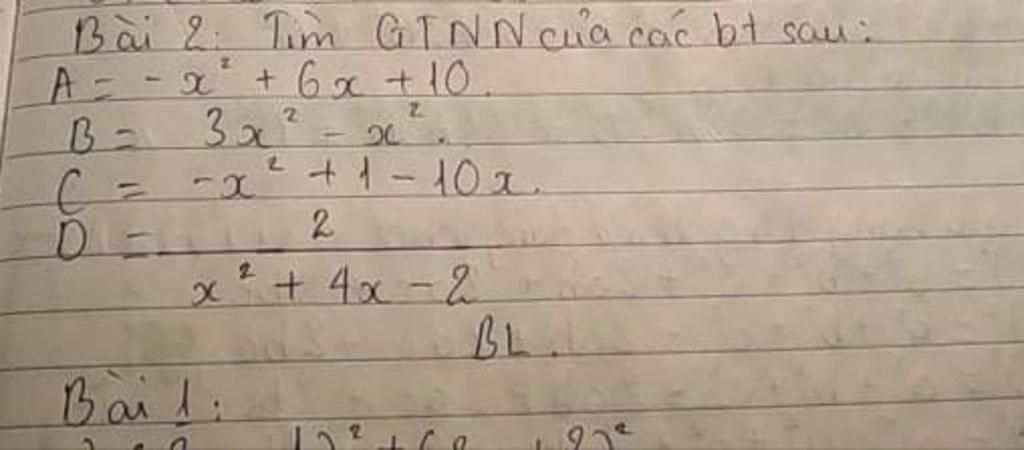 Bài 2: Tìm GTNN của các bt sau:
A = -x² + 6x + 10.
B = 3x² - x².
C = -x² + 1 - 10x.
D = 2
x² + 4x - 2
BL.
Bài 1: